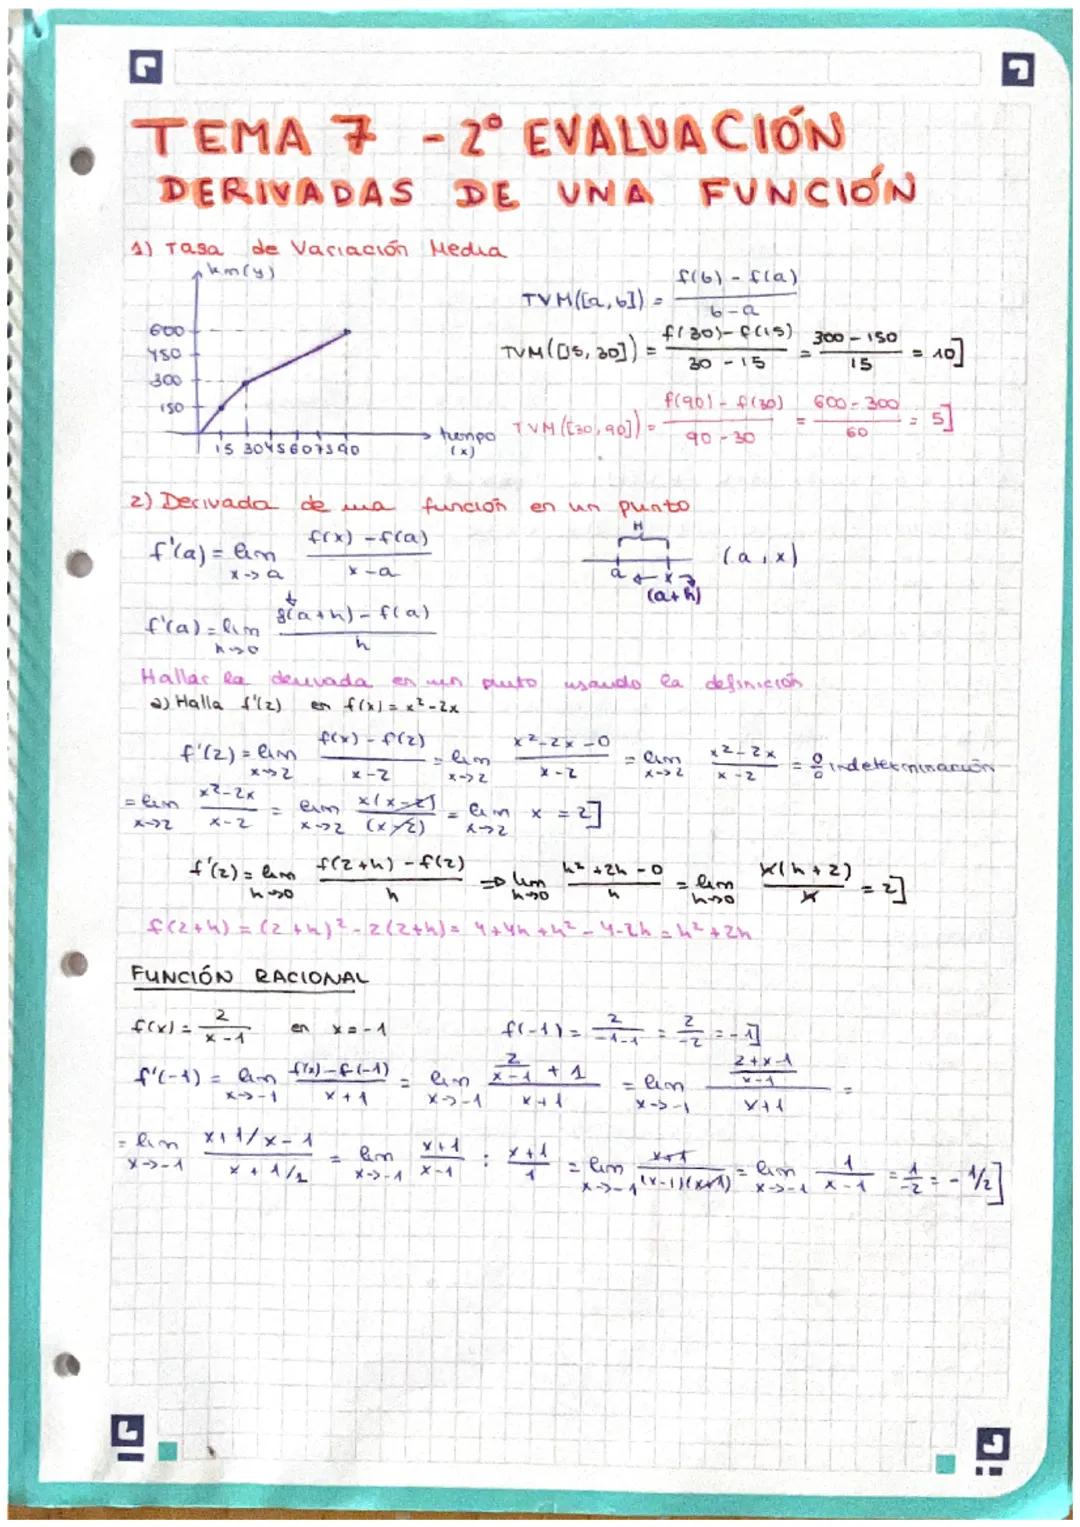 TEMA 7 - 2º EVALUACIÓN
DERIVADAS DE UNA FUNCIÓN
1) Tasa de Variación Media
km(y)
600
450
300
150
15 30 45 60 75 90
tiempo (x)
TVM([a,b]) = f(b) - f(a) / b-a
TVM([15,30]) = f(30)-f(15) / 30-15 = 300-150 / 15 = 10]
TVM([30,90]) = f(90)-f(30) / 90-30 = 600-300 / 60 = 5]
2) Derivada de una función en un punto
f'(a) = lim x->a f(x)-f(a) / x-a
H
a x
(a+h)
(a,x)
f'(a) = lim h->0 f(a+h)-f(a) / h
Hallar la derivada en un punto usando la definición
a) Halla f'(2) en f(x) = x²-2x
f'(2) = lim x->2 f(x)-f(2) / x-2 = lim x->2 x²-2x-0 / x-2 = lim x->2 x²-2x / x-2 = 0/0 indeterminación
= lim x->2 x²-2x / x-2 = lim x->2 x(x-2) / (x-2) = lim x->2 x = 2]
f'(2) = lim h->0 f(2+h)-f(2) / h => lim h->0 h²+2h-0 / h = lim h->0 h(h+2) / h = 2]
f(2+h) = (2+h)²-2(2+h) = 4+4h+h²-4-2h = h²+2h
FUNCIÓN RACIONAL
f(x) = 2 / x-1 en x=-1 f(-1) = 2 / -1-1 = 2 / -2 = -1]
f'(-1) = lim x->-1 f(x)-f(-1) / x+1 = lim x->-1 2/x-1 + 1 / x+1 = lim x->-1 2+x-1 / x-1 / x+1 =
= lim x->-1 x+1/x-1 / x+1/1 = lim x->-1 x+1 / x-1 : x+1 / 1 = lim x->-1 x+1 / (x-1)(x+1) = lim x->-1 1 / x-1 = 1 / -2 = -1/2]